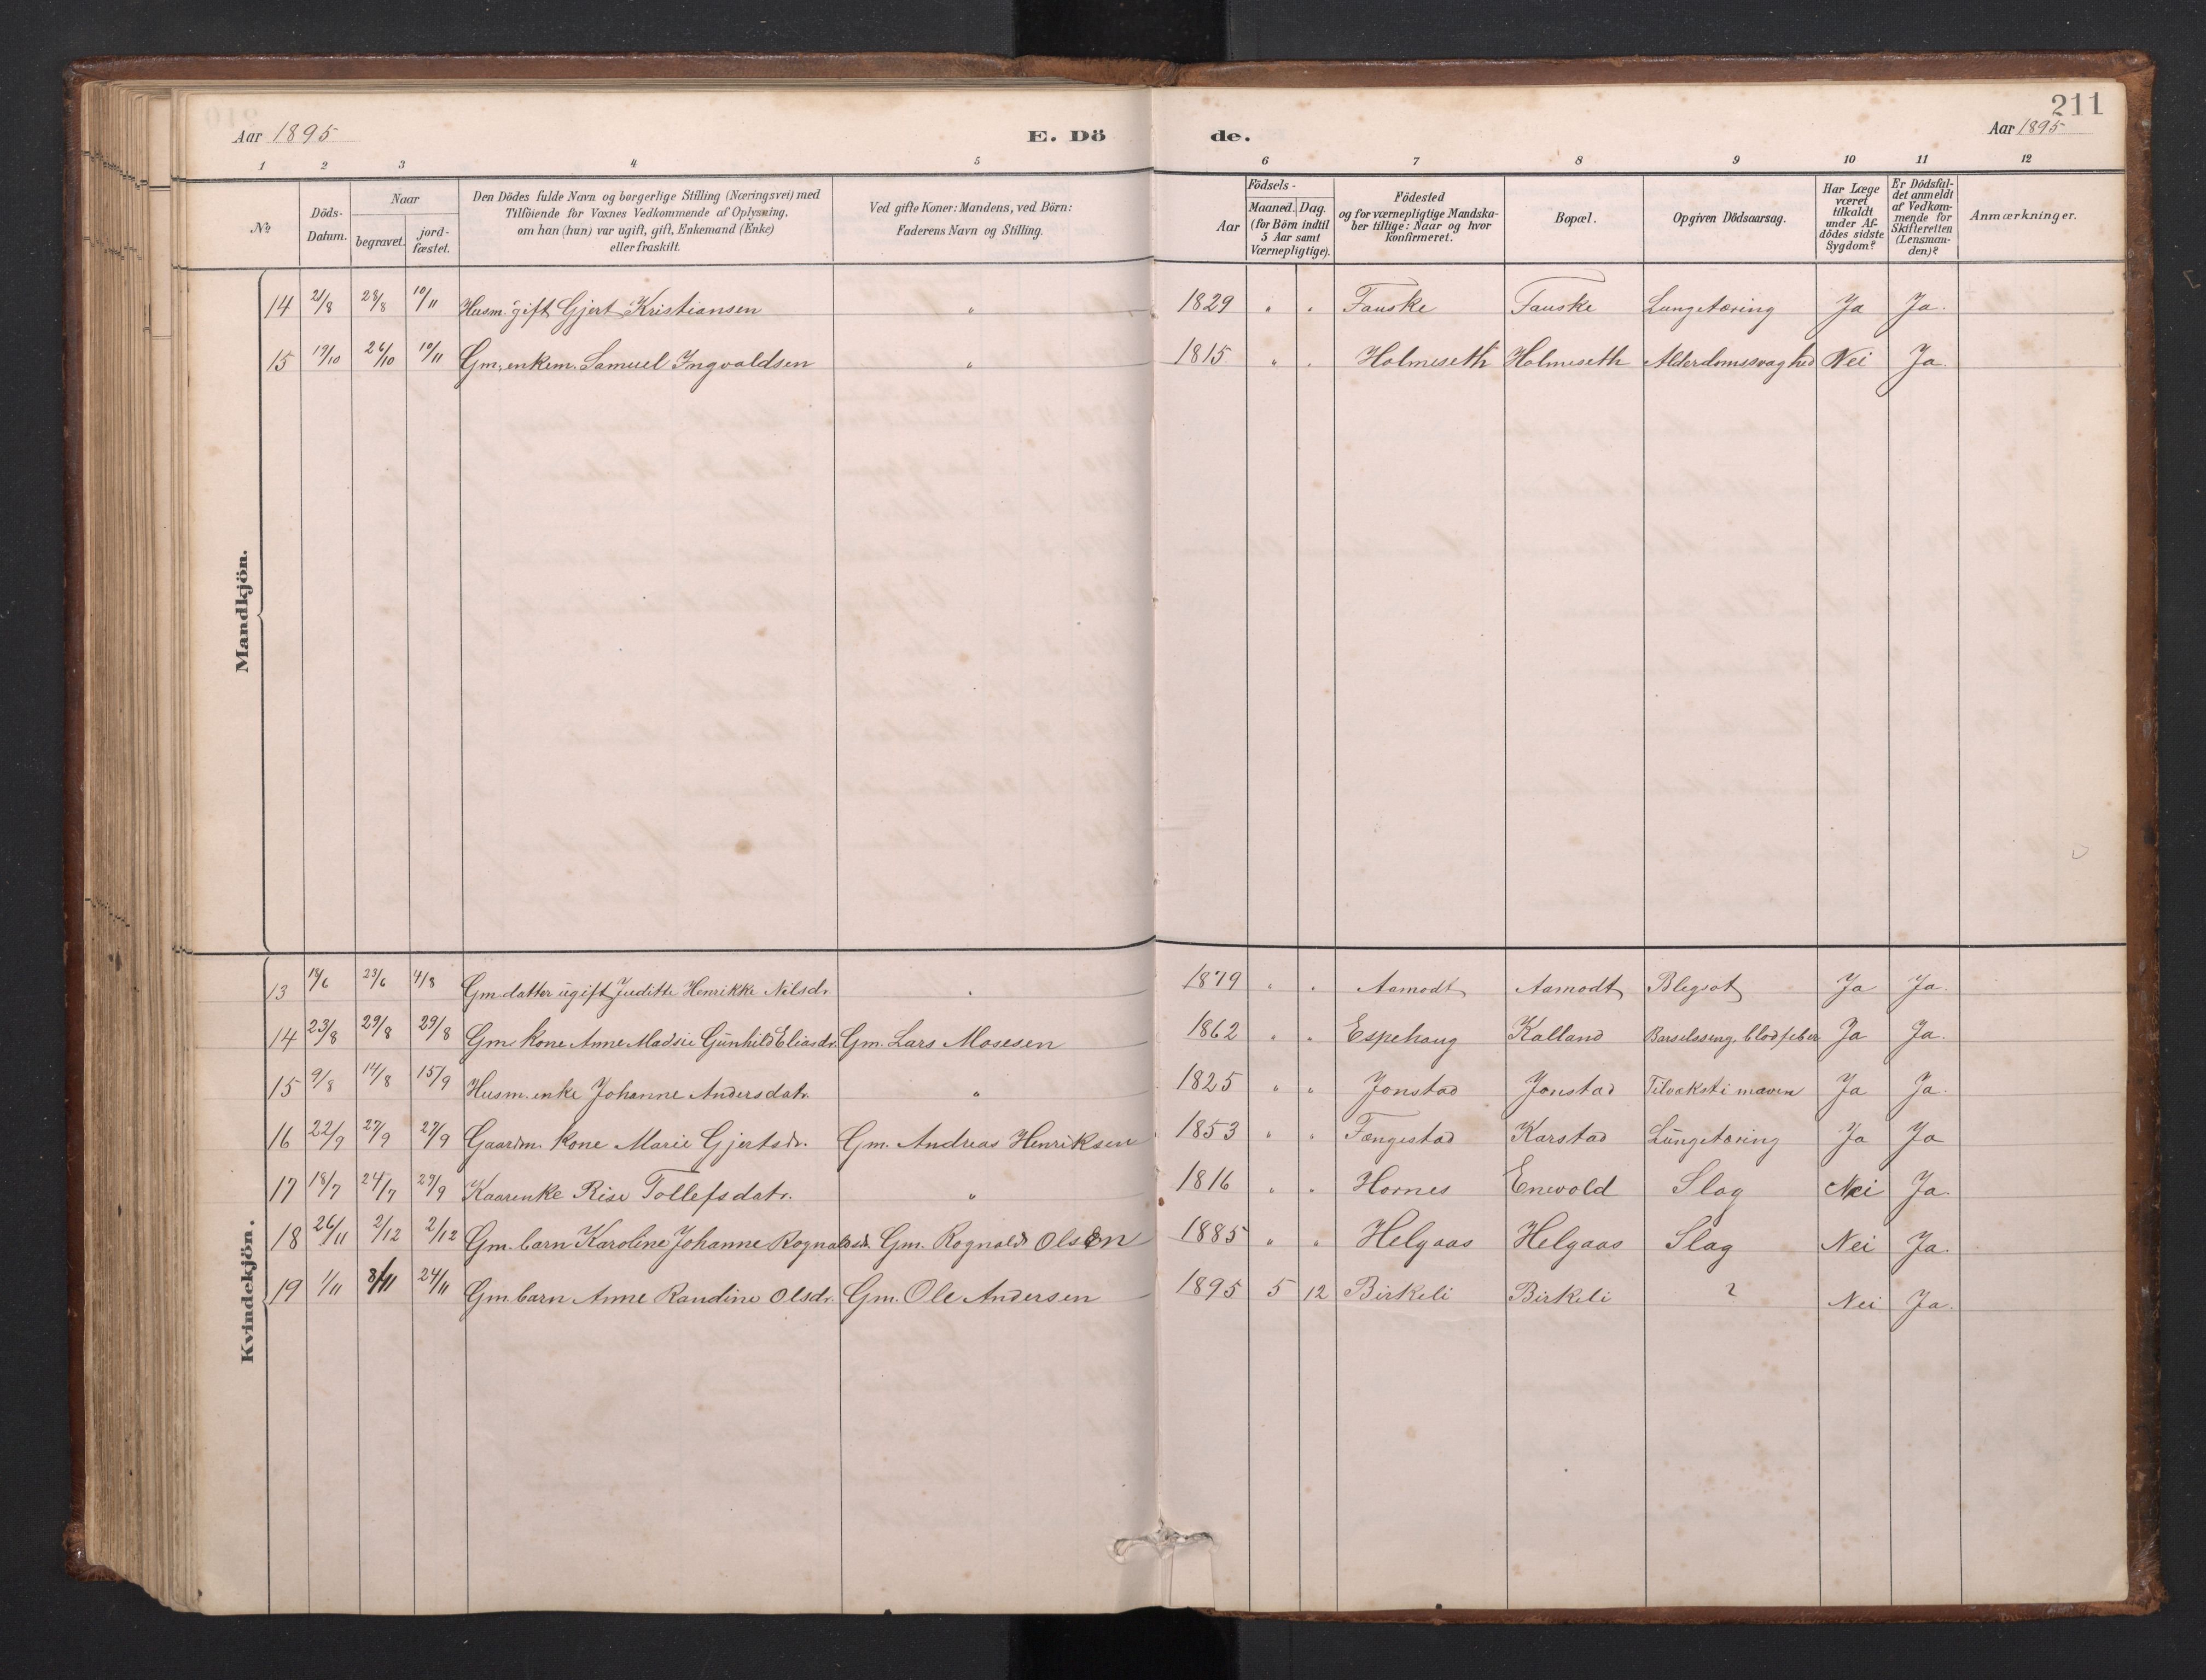 211
Aar 1895 E. Dö de. Aar 1895
1 2 3 4 5 6 7 8 9 10 11 12
No
Döds-Datum.
Naar
begravet.
jord-fæstet.
Den Dödes fulde Navn og borgerlige Stilling (Næringsvei) med
Tilföiende for Voxnes Vedkommende af Oplysning,
om han (hun) var ugift, gift, Enkemand (Enke)
eller fraskilt.
Ved gifte Koner: Mandens, ved Börn:
Faderens Navn og Stilling.
Födsels-
Aar
Maaned. Dag.
(for Börn indtil
5 Aar samt
Værnepligtige).
Födested
og for værnepligtige Mandska-
ber tillige: Naar og hvor
konfirmeret.
Bopæl.
Opgiven Dödsaarsag.
Har Læge
været
tilkaldt
under Af-
dödes sidste
Sygdom?
Er Dödsfal-
det anmeldt
af Vedkom-
mende for
Skifteretten
(Lensman-
den)?
Anmærkninger.
Mandkjön.
14 21/8 28/8 10/11 Husm. gift Gjert Kristiansen " 1829 " " Fauske Fauske Lungetæring Ja Ja.
15 19/10 26/10 10/11 Gm. enkem. Samuel Ingvaldsen " 1815 " " Holmeseth Holmeseth Alderdomssvaghed Nei Ja.
Kvindekjön.
13 18/6 23/6 4/8 Gm. datter ugift Juditte Henrikke Nilsdr. " 1879 " " Aamodt Aamodt Blegsot Ja Ja.
14 23/8 29/8 29/8 Gm. kone Anne Madsie Gunhild Eliasdr. Gm. Lars Mosesen 1862 " " Espehaug Kalland Barselsseng, blodfeber Ja Ja.
15 9/8 14/8 15/9 Husm. enke Johanne Andersdatr. " 1825 " " Jonstad Jonstad Tilvækst i maven Ja Ja.
16 22/9 27/9 27/9 Gaardm. kone Marie Gjertsdr. Gm. Andreas Henriksen 1853 " " Fængestad Karstad Lungetæring Ja Ja
17 18/7 24/7 29/9 Kaarenke Rise Tollefsdatr. " 1816 " " Hornes Enevold Slag Nei Ja.
18 26/11 2/12 2/12 Gm. barn Karoline Johanne Rognaldsdr. Gm. Rognald Olsen 1885 " " Helgaas Helgaas Slag Nei Ja.
19 1/11 8/11 24/11 Gm. barn Anne Randine Olsdr. Gm. Ole Andersen 1895 5 12 Birkeli Birkeli ? Nei Ja.